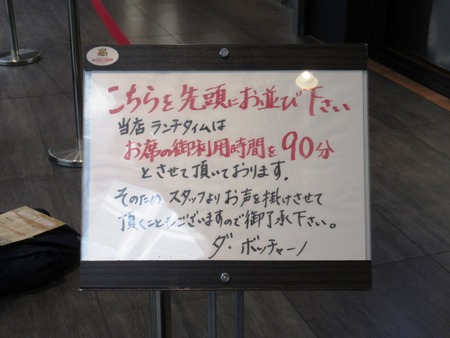 こちらを先頭にお並び下さい
当店ランチタイムは
お席の御利用時間を90分
とさせて頂いております。
そのため、スタッフよりお声を掛けさせて
頂くこともございますので御了承下さい。
ダ・ボッチャーノ